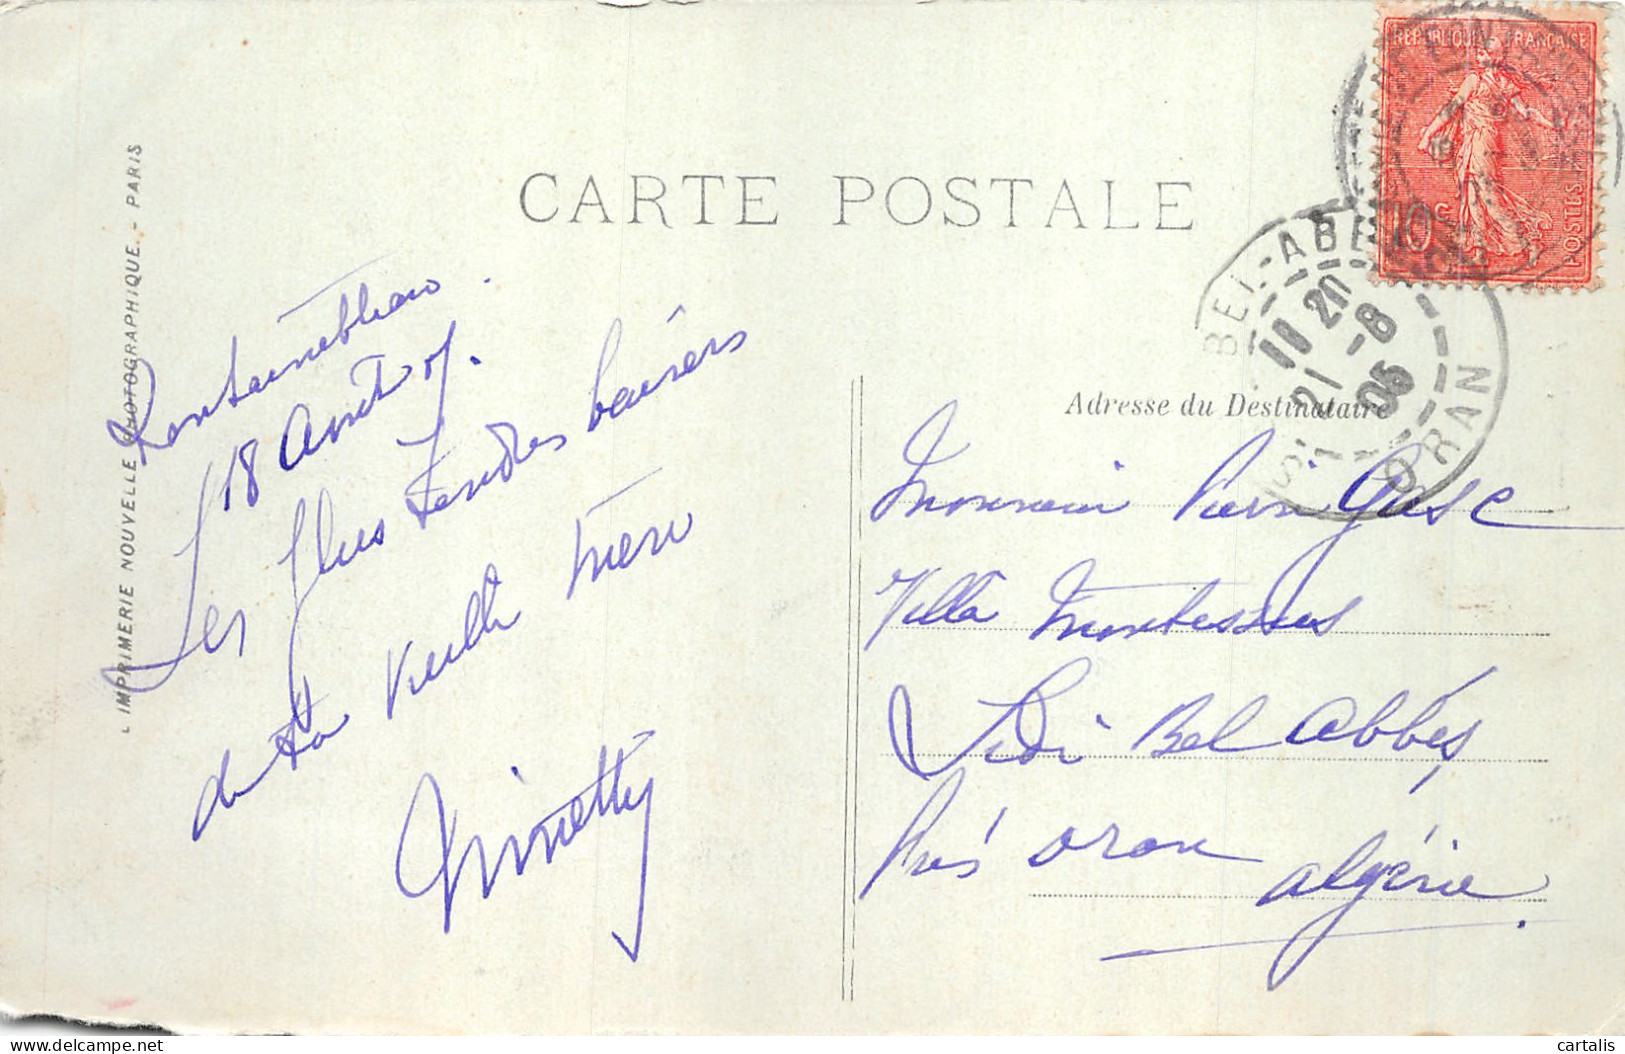 CARTE POSTALE
REPUBLIQUE FRANÇAISE
10c
POSTES
BEL-ABBES
ORAN
11 20
21 -8
05
IMPRIMERIE NOUVELLE PHOTOGRAPHIQUE - PARIS
Fontainebleau.
18 Aout 05.
Les plus tendres baisers
de ta vieille
Adresse du Destinataire
Monsieur Pierre Gasc
Villa
Sidi Bel Abbès,
Près Oran
Algérie.
cartalis